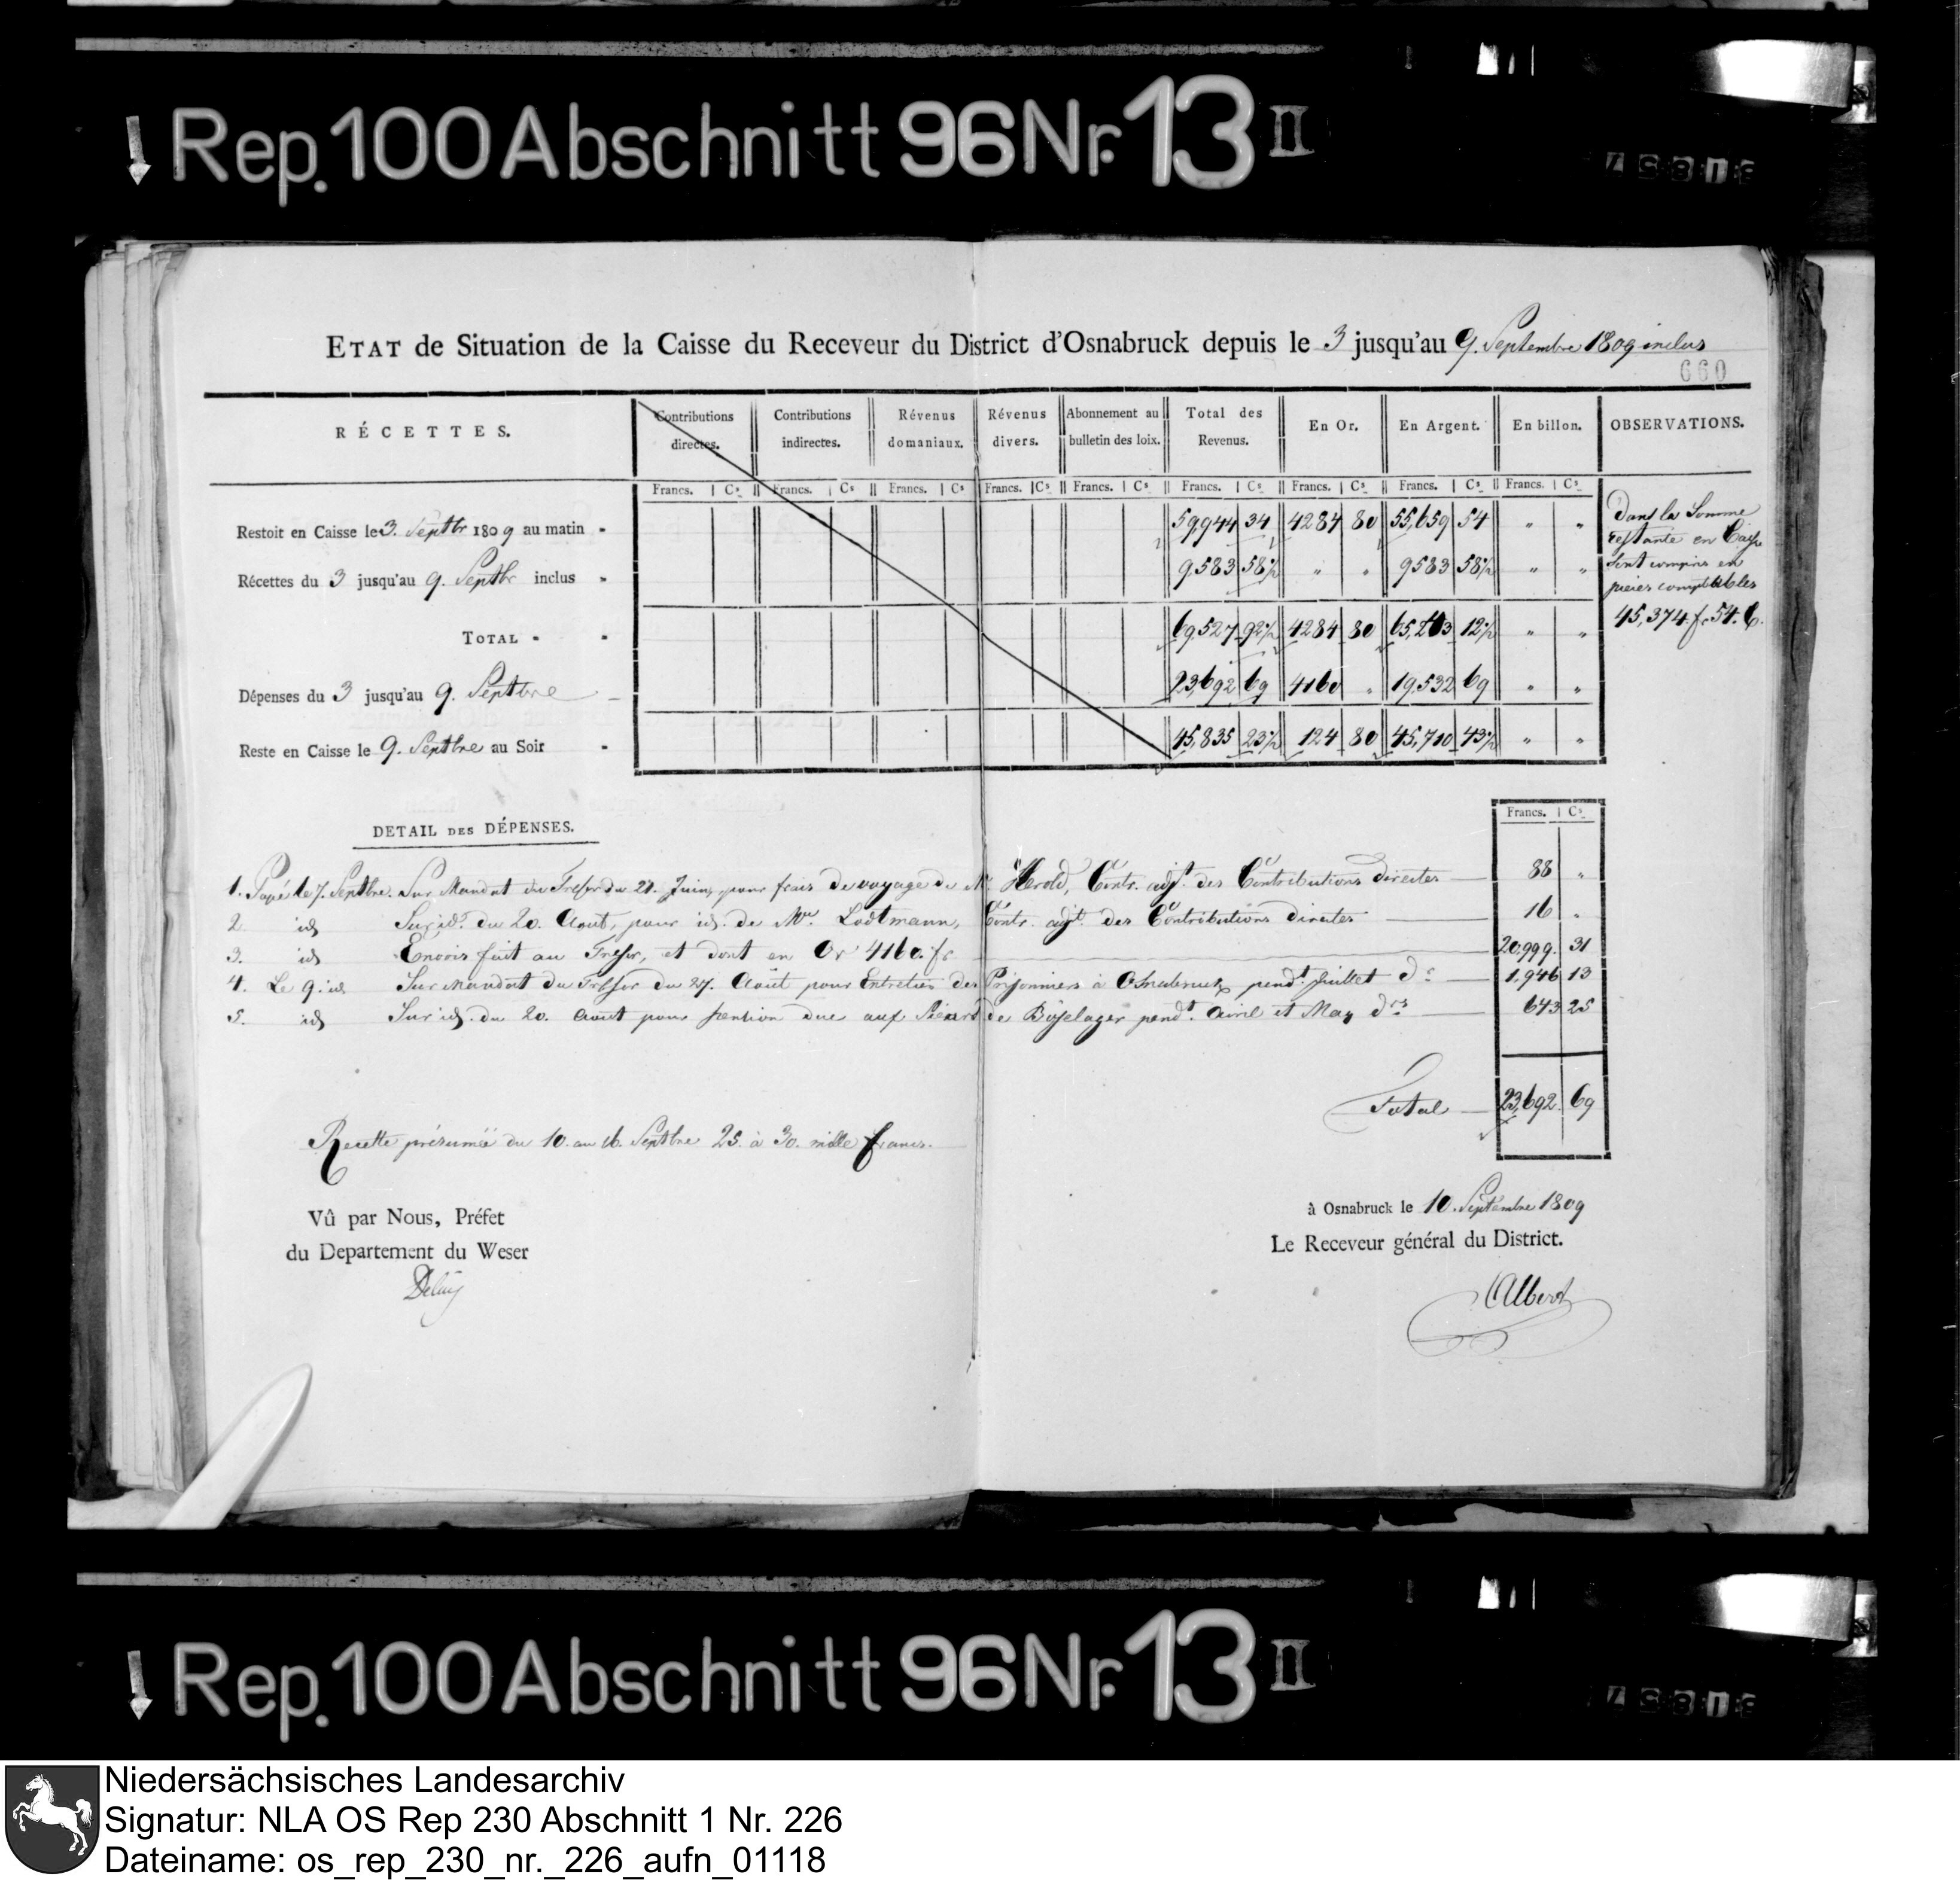 Rep. 100 Abschnitt 96 Nr. 13 II
ETAT de Situation de la Caisse du Receveur du District d'Osnabruck depuis le 3 jusqu'au 9. Septembre 1809 inclus
660
RÉCETTES. Contributions directes. Contributions indirectes. Révenus domaniaux. Révenus divers. Abonnement au bulletin des loix. Total des Revenus. En Or. En Argent. En billon. OBSERVATIONS.
Francs. Cs. Francs. Cs Francs. Cs Francs. Cs. Francs. Cs. Francs. Cs. Francs. Cs. Francs. Cs. Francs. Cs.
Restoit en Caisse le 3. Septbr 1809 au matin 59,944 34 4284 80 55,659 54 " "
Récettes du 3 jusqu'au 9. Septbr inclus 9583 58½ " " 9583 58½ " "
TOTAL 69,527 92½ 4284 80 65,243 12½ " "
Dépenses du 3 jusqu'au 9. Septbre 23,692 69 4160 " 19,532 69 " "
Reste en Caisse le 9. Septbre au Soir 45,835 23½ 124 80 45,710 43½ " "
Dans la Somme
restante en Caisse
sont compris en
pièces comptables
45,374 fr. 54. C.
DETAIL DES DÉPENSES.
Francs. Cs.
1. Payé le 7. Septbre. Sur Mandat du Tresor du 21. Juin, pour frais de voyage de Mr. Herold, Contr. adjt. des Contributions directes 88 "
2 id Sur id. du 20. Août, pour id. de Mr. Lodtmann, Contr. adjt. des Contributions directes 16 "
3. id Envois fait au Tresor, et dont en Or 4160. fr 20,999. 31
4. Le 9. id. Sur Mandat du Tresor du 27. Août pour Entretien des Prisonniers à Osnabruck pendt. Juillet dr 1,946 13
5. id Sur id. du 20. Août pour pension due aux Sieurs de Böselager pendt. Avril et May drs 643 25
Total 23,692. 69
Recette présumée du 10. au 16. Septbre 25. à 30. mille francs.
Vû par Nous, Préfet
du Departement du Weser
à Osnabruck le 10. Septembre 1809
Le Receveur général du District.
Albert
Rep. 100 Abschnitt 96 Nr. 13 II
Niedersächsisches Landesarchiv
Signatur: NLA OS Rep 230 Abschnitt 1 Nr. 226
Dateiname: os_rep_230_nr._226_aufn_01118